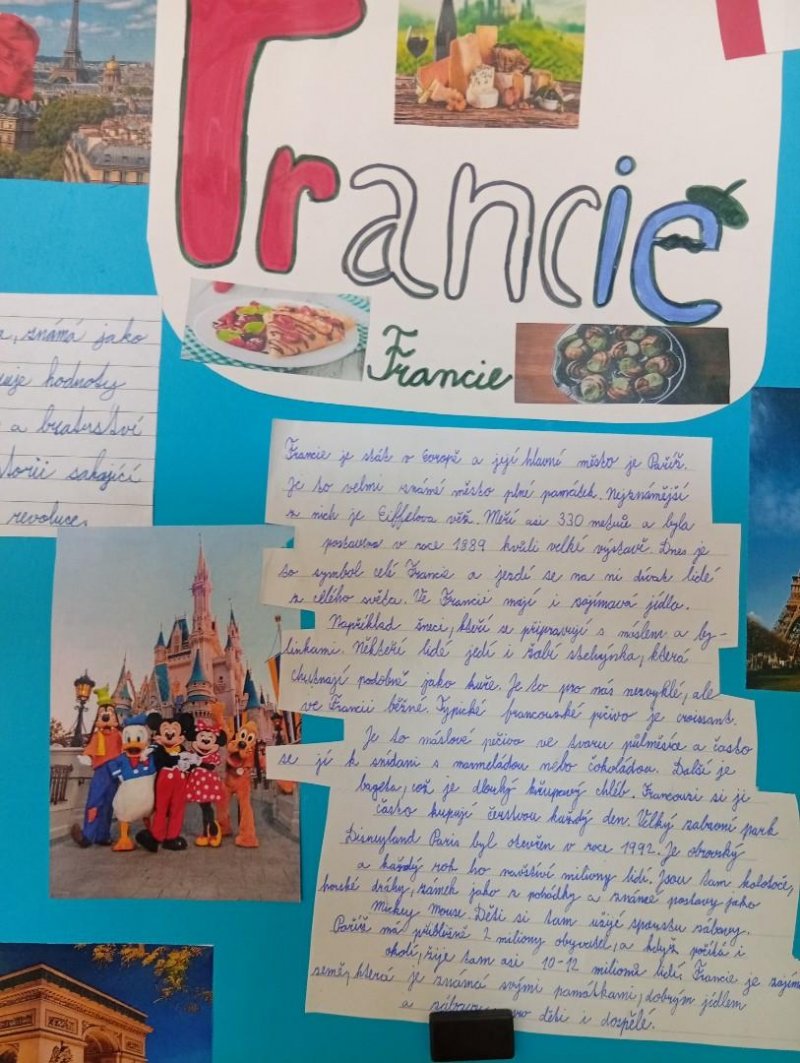 Francie
Francie
, známá jako
hodnoty
a bratrství
sahající
revoluce.
Francie je stát v Evropě a její hlavní město je Paříž.
Je to velmi známé město plné památek. Nejznámější
z nich je Eiffelova věž. Měří asi 330 metrů a byla
postavena v roce 1889 kvůli velké výstavě. Dnes je
to symbol celé Francie a jezdí se na ni dívat lidé
z celého světa. Ve Francii mají i zajímavá jídla.
Například šneci, kteří se připravují s máslem a by-
linkami. Někteří lidé jedí i žabí stehýnka, která
chutnají podobně jako kuře. Je to pro nás nezvyklé, ale
ve Francii běžné. Typické francouzské pečivo je croissant.
Je to máslové pečivo ve tvaru půlměsíce a často
se jí k snídani s marmeládou nebo čokoládou. Další je
bageta, což je dlouhý křupavý chléb. Francouzi si ji
často kupují čerstvou každý den. Velký zábavní park
Disneyland Paris byl otevřen v roce 1992. Je obrovský
a každý rok ho navštíví miliony lidí. Jsou tam kolotoče,
horské dráhy, zámek jako z pohádky a známé postavy jako
Mickey Mouse. Děti si tam užijí spoustu zábavy.
Paříž má přibližně 2 miliony obyvatel, a když počítá i
okolí, žije tam asi 10-12 milionů lidí. Francie je zajím
země, která je známá svými památkami, dobrým jídlem
a pro děti i dospělé.